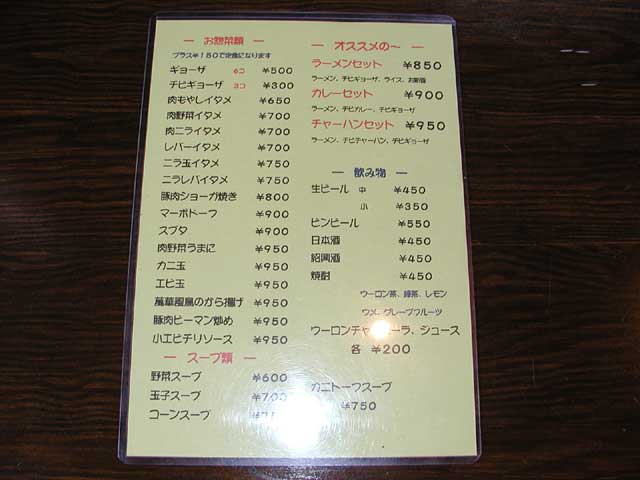 ― お惣菜類 ―
プラス¥150で定食になります
ギョーザ 6コ ¥500
チビギョーザ 3コ ¥300
肉もやしイタメ ¥650
肉野菜イタメ ¥700
肉ニライタメ ¥700
レバーイタメ ¥700
ニラ玉イタメ ¥750
ニラレバイタメ ¥750
豚肉ショーガ焼き ¥800
マーボドーフ ¥900
スブタ ¥900
肉野菜うまに ¥950
カニ玉 ¥950
エビ玉 ¥950
萬華風鳥のから揚げ ¥950
豚肉ピーマン炒め ¥950
小エビチリソース ¥950
― スープ類 ―
野菜スープ ¥600
玉子スープ ¥700
コーンスープ
― オススメの～ ―
ラーメンセット ¥850
ラーメン、チビギョーザ、ライス、お新香
カレーセット ¥900
ラーメン、チビカレー、チビギョーザ
チャーハンセット ¥950
ラーメン、チビチャーハン、チビギョーザ
― 飲み物 ―
生ビール 中 ¥450
小 ¥350
ビンビール ¥550
日本酒 ¥450
紹興酒 ¥450
焼酎 ¥450
ウーロン茶、緑茶、レモン
ウメ、グレープフルーツ
ジュース
各 ¥200
カニトーフスープ
¥750